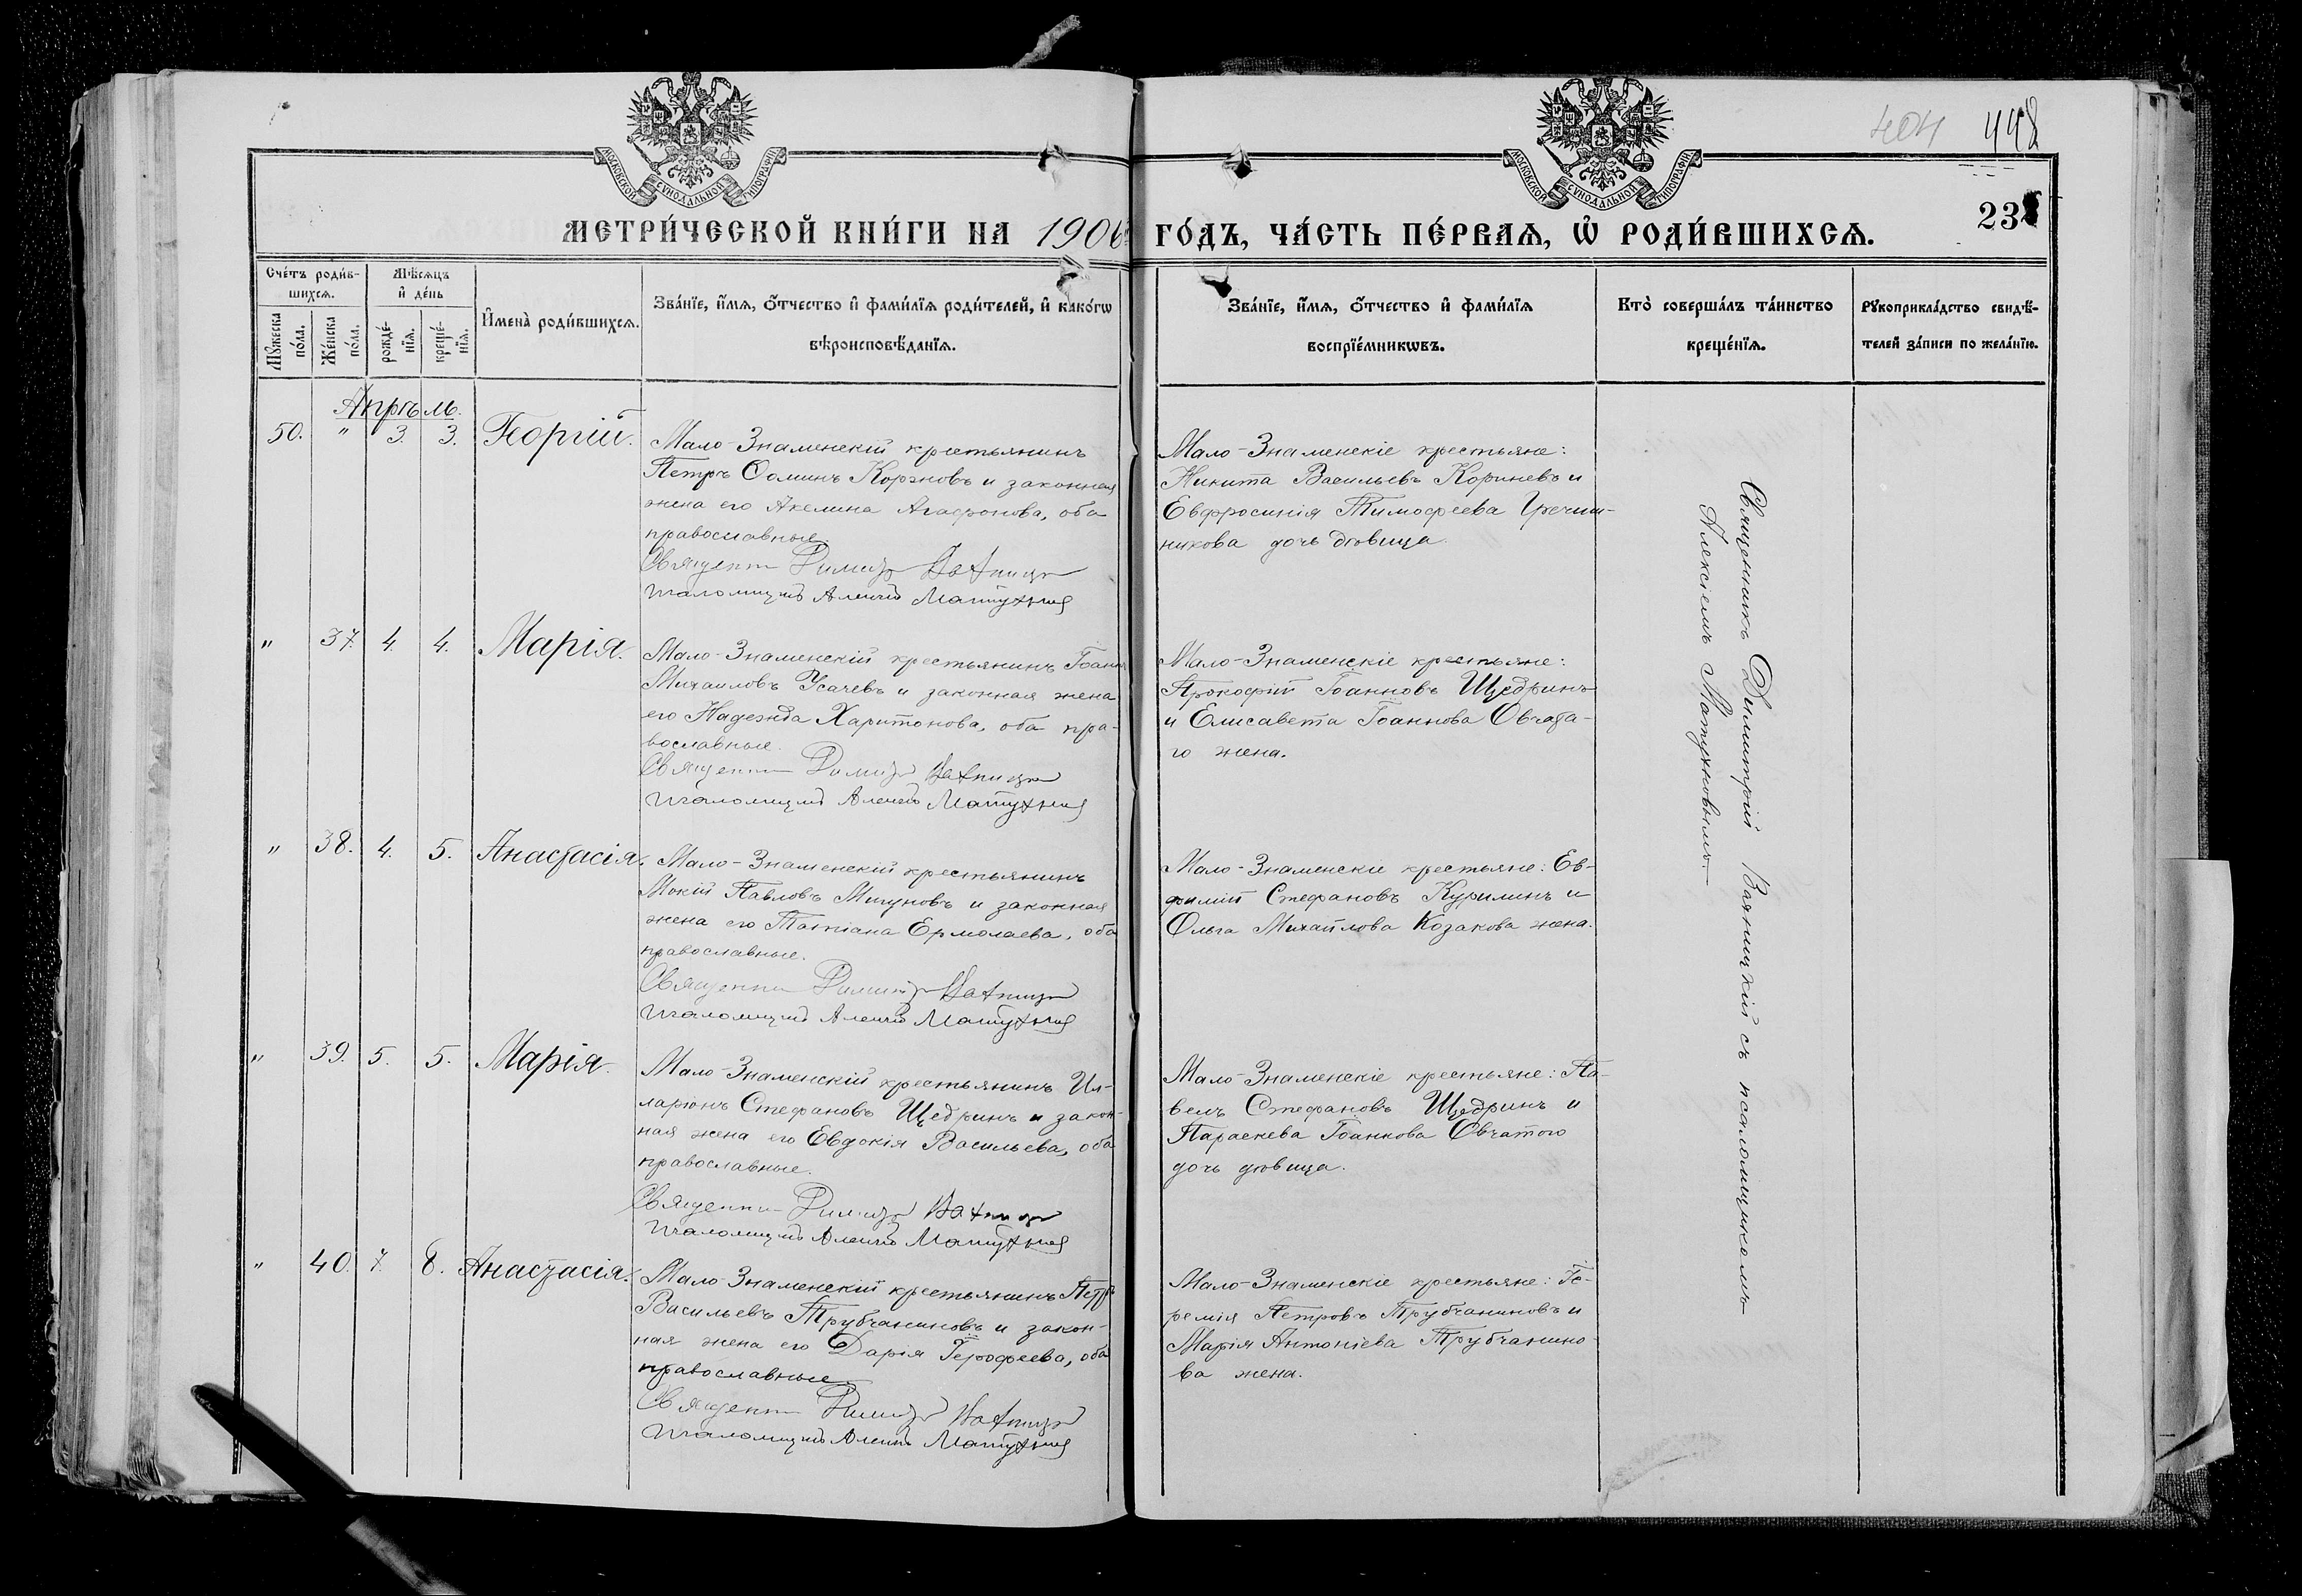 404 442
МОСКОВСКОЙ СѴНОДАЛЬНОЙ ТИПОГРАФІИ
МОСКОВСКОЙ СѴНОДАЛЬНОЙ ТИПОГРАФІИ
МЕТРИ́ЧЕСКОЙ КНИ́ГИ НА 1906 ГО́ДЪ, ЧА́СТЬ ПЕ́РВАѦ, Ѡ҆ РОДИ́ВШИХСѦ.
23
Сче́тъ роди́в-
шихсѧ.
Мꙋ́жеска
по́ла.
Же́нска
по́ла.
Мѣ́сѧцъ
и҆ де́нь
рожде́-
нїѧ.
креще́-
нїѧ.
И҆мена̀ роди́вшихсѧ.
Зва́нїе, и҆́мѧ, ѻ҆́тчество и҆ фами́лїѧ роди́телей, и҆ како́гѡ
вѣроисповѣ́данїѧ.
Зва́нїе, и҆́мѧ, ѻ҆́тчество и҆ фами́лїѧ
воспрїе́мникѡвъ.
Кто̀ соверша́лъ та́инство
креще́нїѧ.
Рꙋкоприкла́дство свидѣ́-
телей за́писи по жела́нїю.
Апрѣль.
50. " 3. 3. Георгій.
Мало-Знаменскій крестьянинъ
Петръ Ѳоминъ Корэновъ и законная
жена его Акелина Агаѳонова, оба
православные.
Священн Димитр
Псаломщикъ Алексѣй Матух
Мало-Знаменскіе крестьяне:
Никита Васильевъ Кориневъ и
Евфросинія Тимоѳеева Гречиш-
никова дочь дѣвица.
" 37. 4. 4. Марія.
Мало-Знаменскій крестьянинъ Іоаннъ
Михаиловъ Усачевъ и законная жена
его Надежда Харитонова, оба пра-
вославные.
Священн Димитр
Псаломщикъ Алексѣй Матух
Мало-Знаменскіе крестьяне:
Прокофій Іоанновъ Щедринъ
и Елисавета Іоаннова Овчата-
го жена.
" 38. 4. 5. Анастасія.
Мало-Знаменскій крестьянинъ
Мокій Павловъ Мигуновъ и законная
жена его Татіана Ермолаева, оба
православные.
Священн Димитр
Псаломщикъ Алексѣй Матух
Мало-Знаменскіе крестьяне: Ев-
фимій Стефановъ Куримынъ и
Ольга Михайлова Козакова жена.
" 39. 5. 5. Марія.
Мало-Знаменскій крестьянинъ Ил-
ларіонъ Стефановъ Щедринъ и закон-
ная жена его Евдокія Васильева, оба
православные.
Священн Димитр
Псаломщикъ Алексѣй Матух
Мало-Знаменскіе крестьяне: Па-
велъ Стефановъ Щедринъ и
Параскева Іоаннова Овчатого
дочь дѣвица.
" 40. 7. 8. Анастасія.
Мало-Знаменскій крестьянинъ Петръ
Васильевъ Трубчаниновъ и закон-
ная жена его Дарія Іероѳеева, оба
православные.
Священн Димитр
Псаломщикъ Алексѣй Матух
Мало-Знаменскіе крестьяне: Іе-
ремія Петровъ Трубчаниновъ и
Марія Антоніева Трубчанино-
ва жена.
Священникъ Димитрій съ псаломщикомъ
Алексіемъ Матухновымъ.